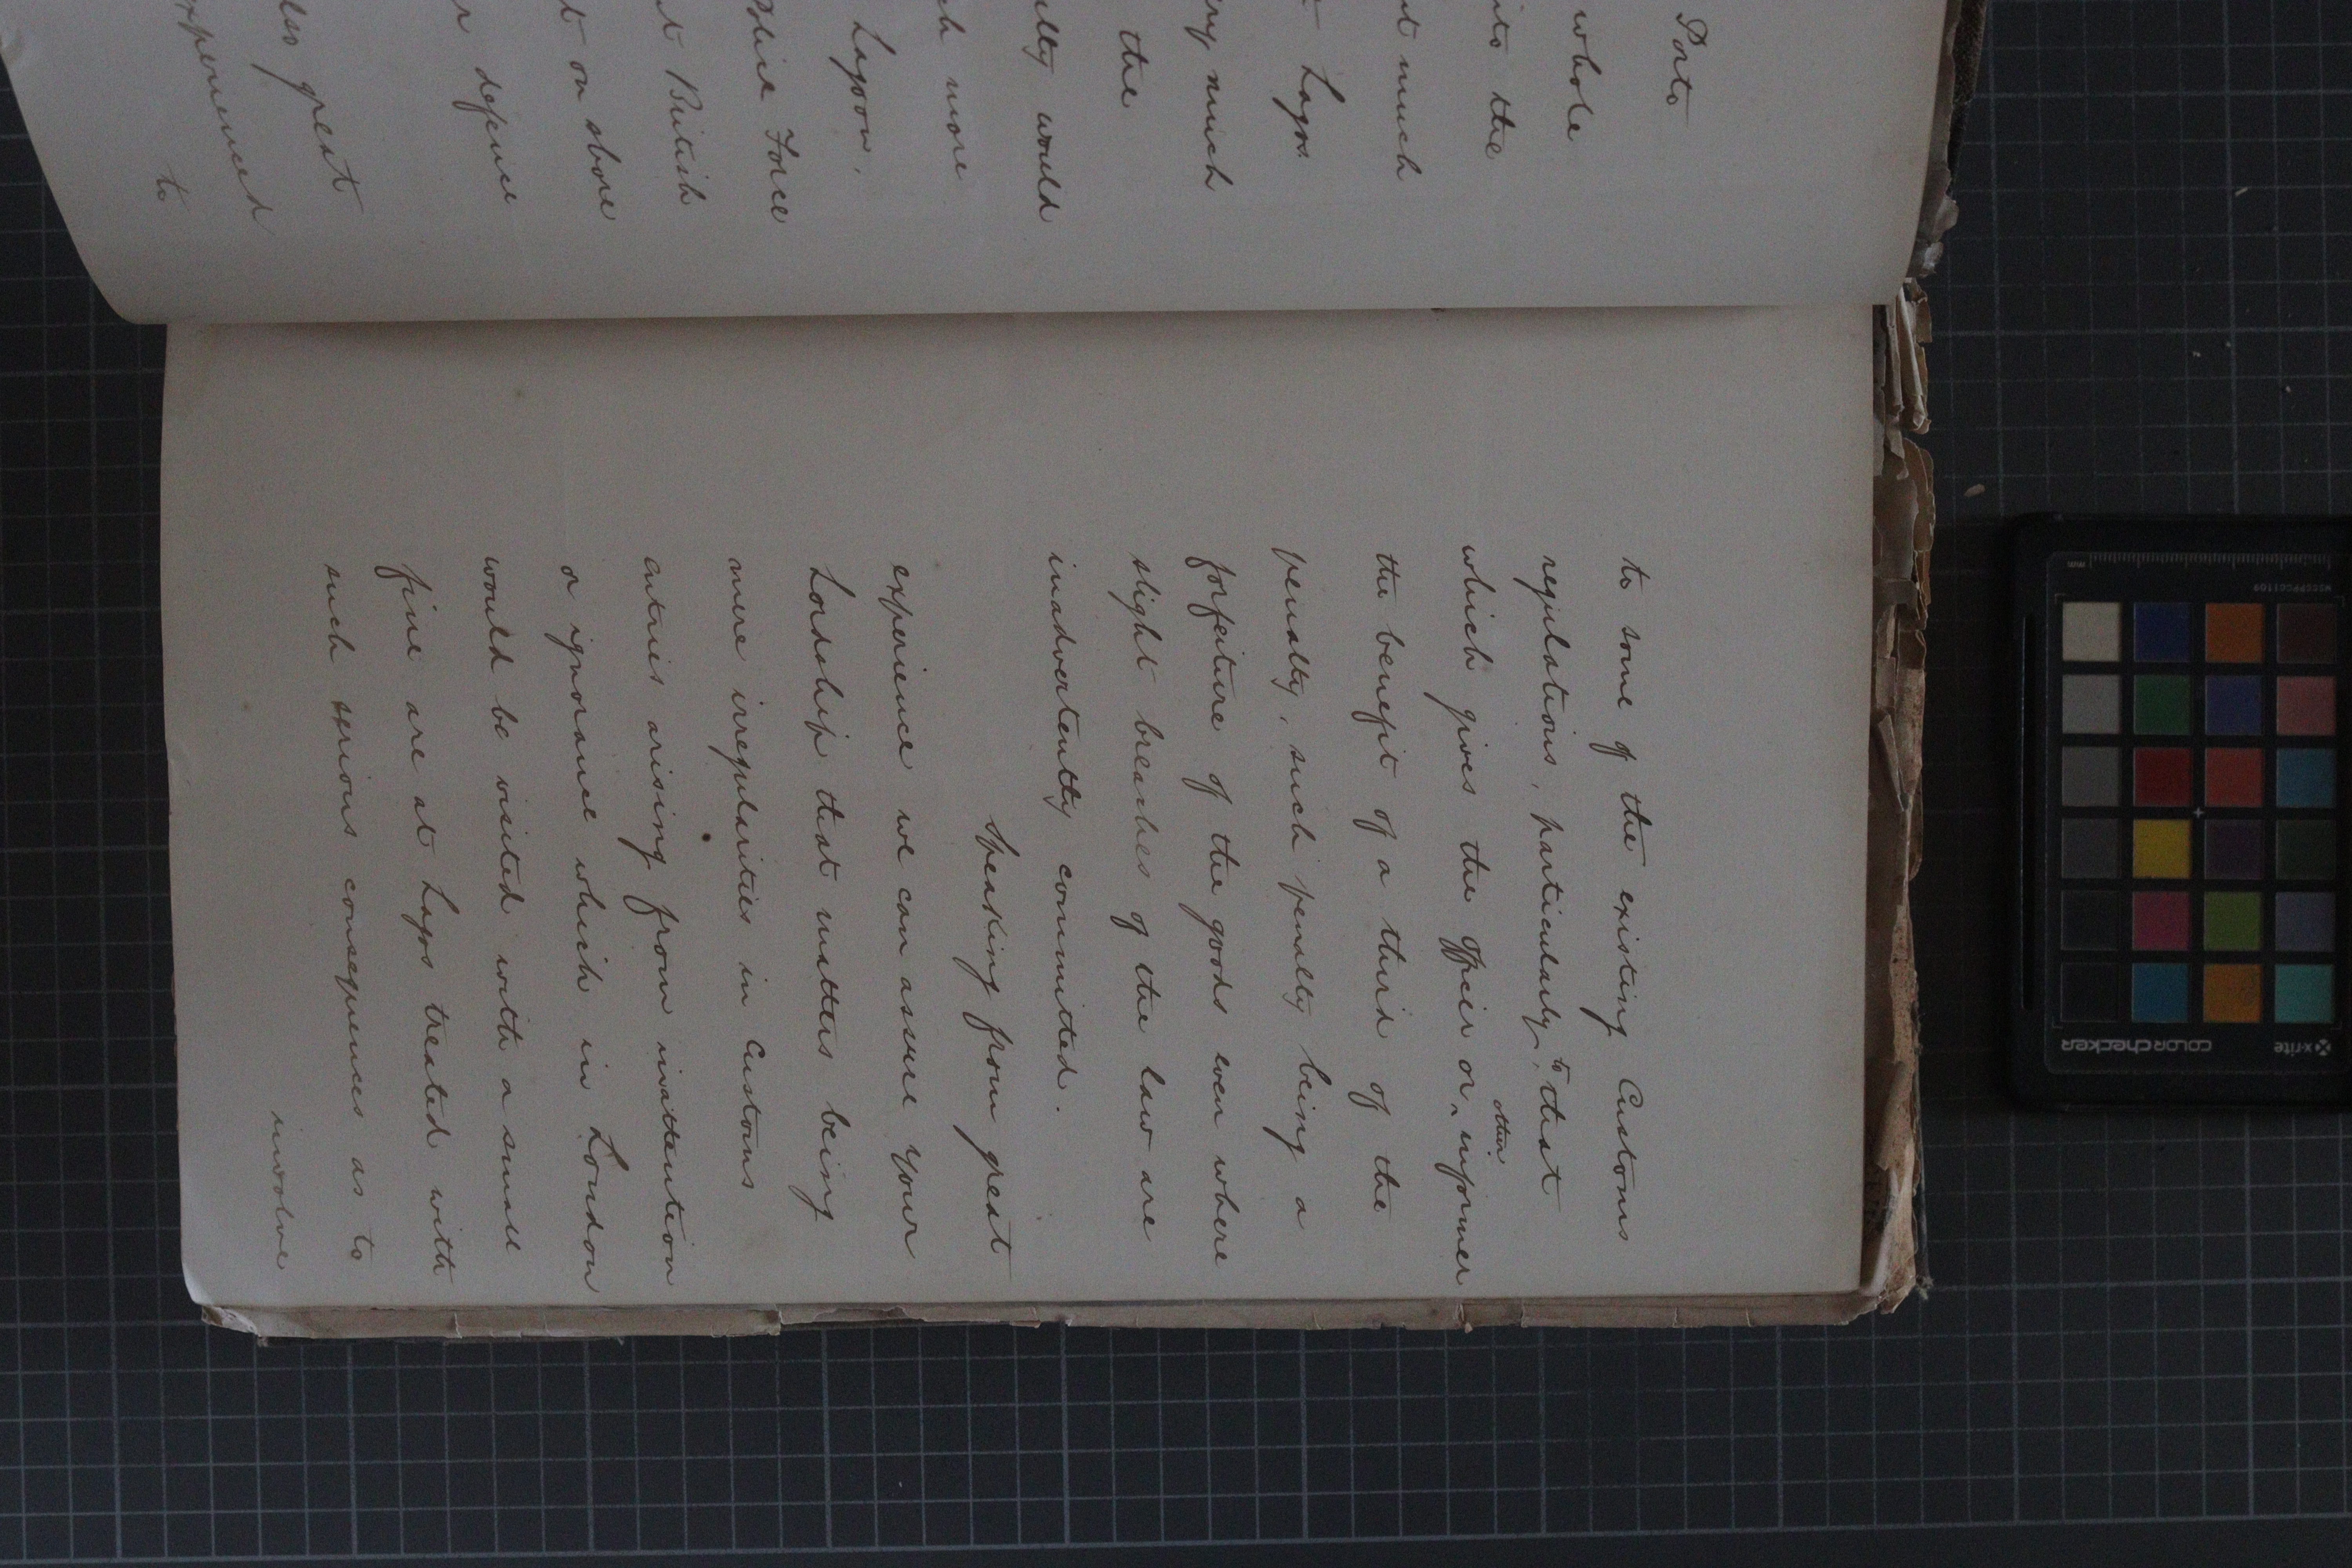 Porto
whole
the
much
Lagos
much
the
would
more
Lagoon.
Force
British
on shore
defence
great
to
to some of the existing Customs
regulations, particularly to that
which gives the officer or other informer
the benefit of a third of the
penalty, such penalty being a
forfeiture of the goods even where
slight breaches of the law are
inadvertently committed.
Speaking from great
experience we can assure Your
Lordship that matters being
mere irregularities in Customs
entries arising from inattention
or ignorance which in London
would be visited with a small
fine are at Lagos treated with
such serious consequences as to
involve
x-rite
colorchecker
mm